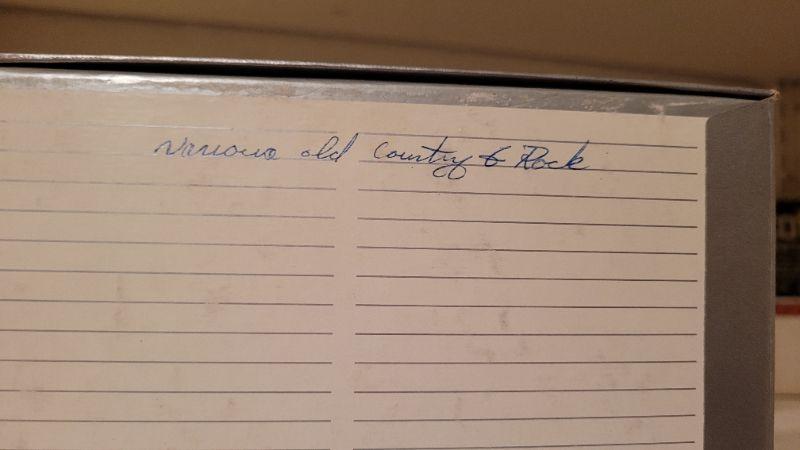 various old Country & Rock